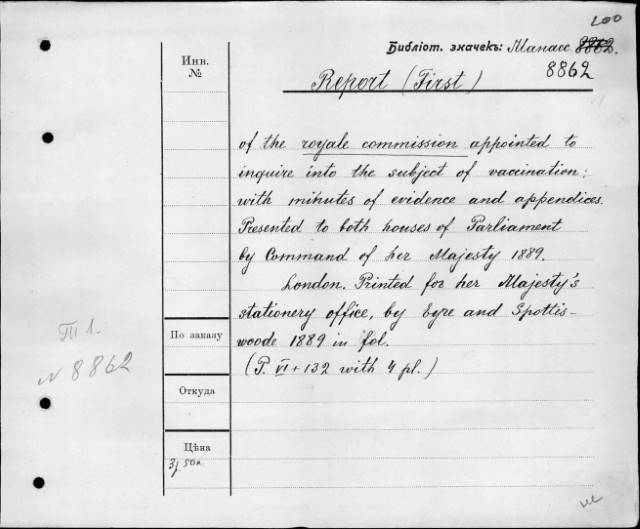 200
Библіот. значекъ: Манасс. 8862.
8862
Инв.
№
Report (First)
of the royale commission appointed to
inquire into the subject of vaccination;
with minutes of evidence and appendices.
Presented to both houses of Parliament
by Command of her Majesty 1889.
London. Printed for her Majesty's
stationery office, by Eyre and Spottis-
woode 1889 in fol.
(P. VI + 132 with 4 pl.)
По заказу
N 8862
Откуда
Цѣна